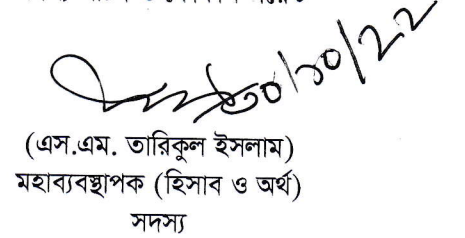 ৩০/১০/২২
(এস.এম. তারিকুল ইসলাম)
মহাব্যবস্থাপক (হিসাব ও অর্থ)
সদস্য